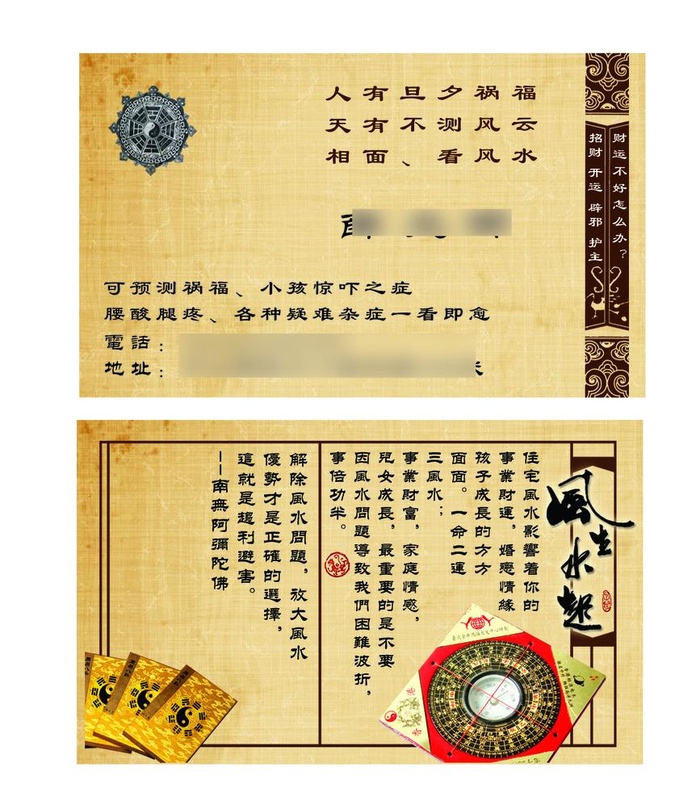 人有旦夕祸福
天有不测风云
相面、看风水
财运不好怎么办？
招财 开运 辟邪 护主
可预测祸福、小孩惊吓之症
腰酸腿疼、各种疑难杂症一看即愈
電話：
地址：
風生水起
住宅風水影響着你的
事業財運，婚戀情緣
孩子成長的方方
面面。一命二運
三風水；
事業財富，家庭情感，
兒女成長，最重要的是不要
因風水問題導致我們困難波折，
事倍功半。
解除風水問題，放大風水
優勢才是正確的選擇，
這就是趨利避害。
——南無阿彌陀佛